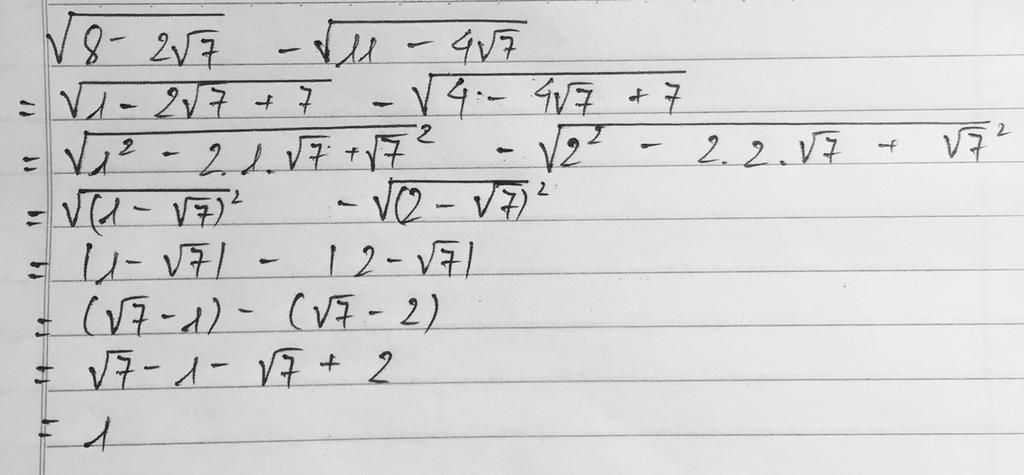 √(8 - 2√7) - √(11 - 4√7)
= √(1 - 2√7 + 7) - √(4 - 4√7 + 7)
= √(1² - 2.1.√7 + √7²) - √(2² - 2.2.√7 + √7²)
= √(1 - √7)² - √(2 - √7)²
= |1 - √7| - |2 - √7|
= (√7 - 1) - (√7 - 2)
= √7 - 1 - √7 + 2
= 1